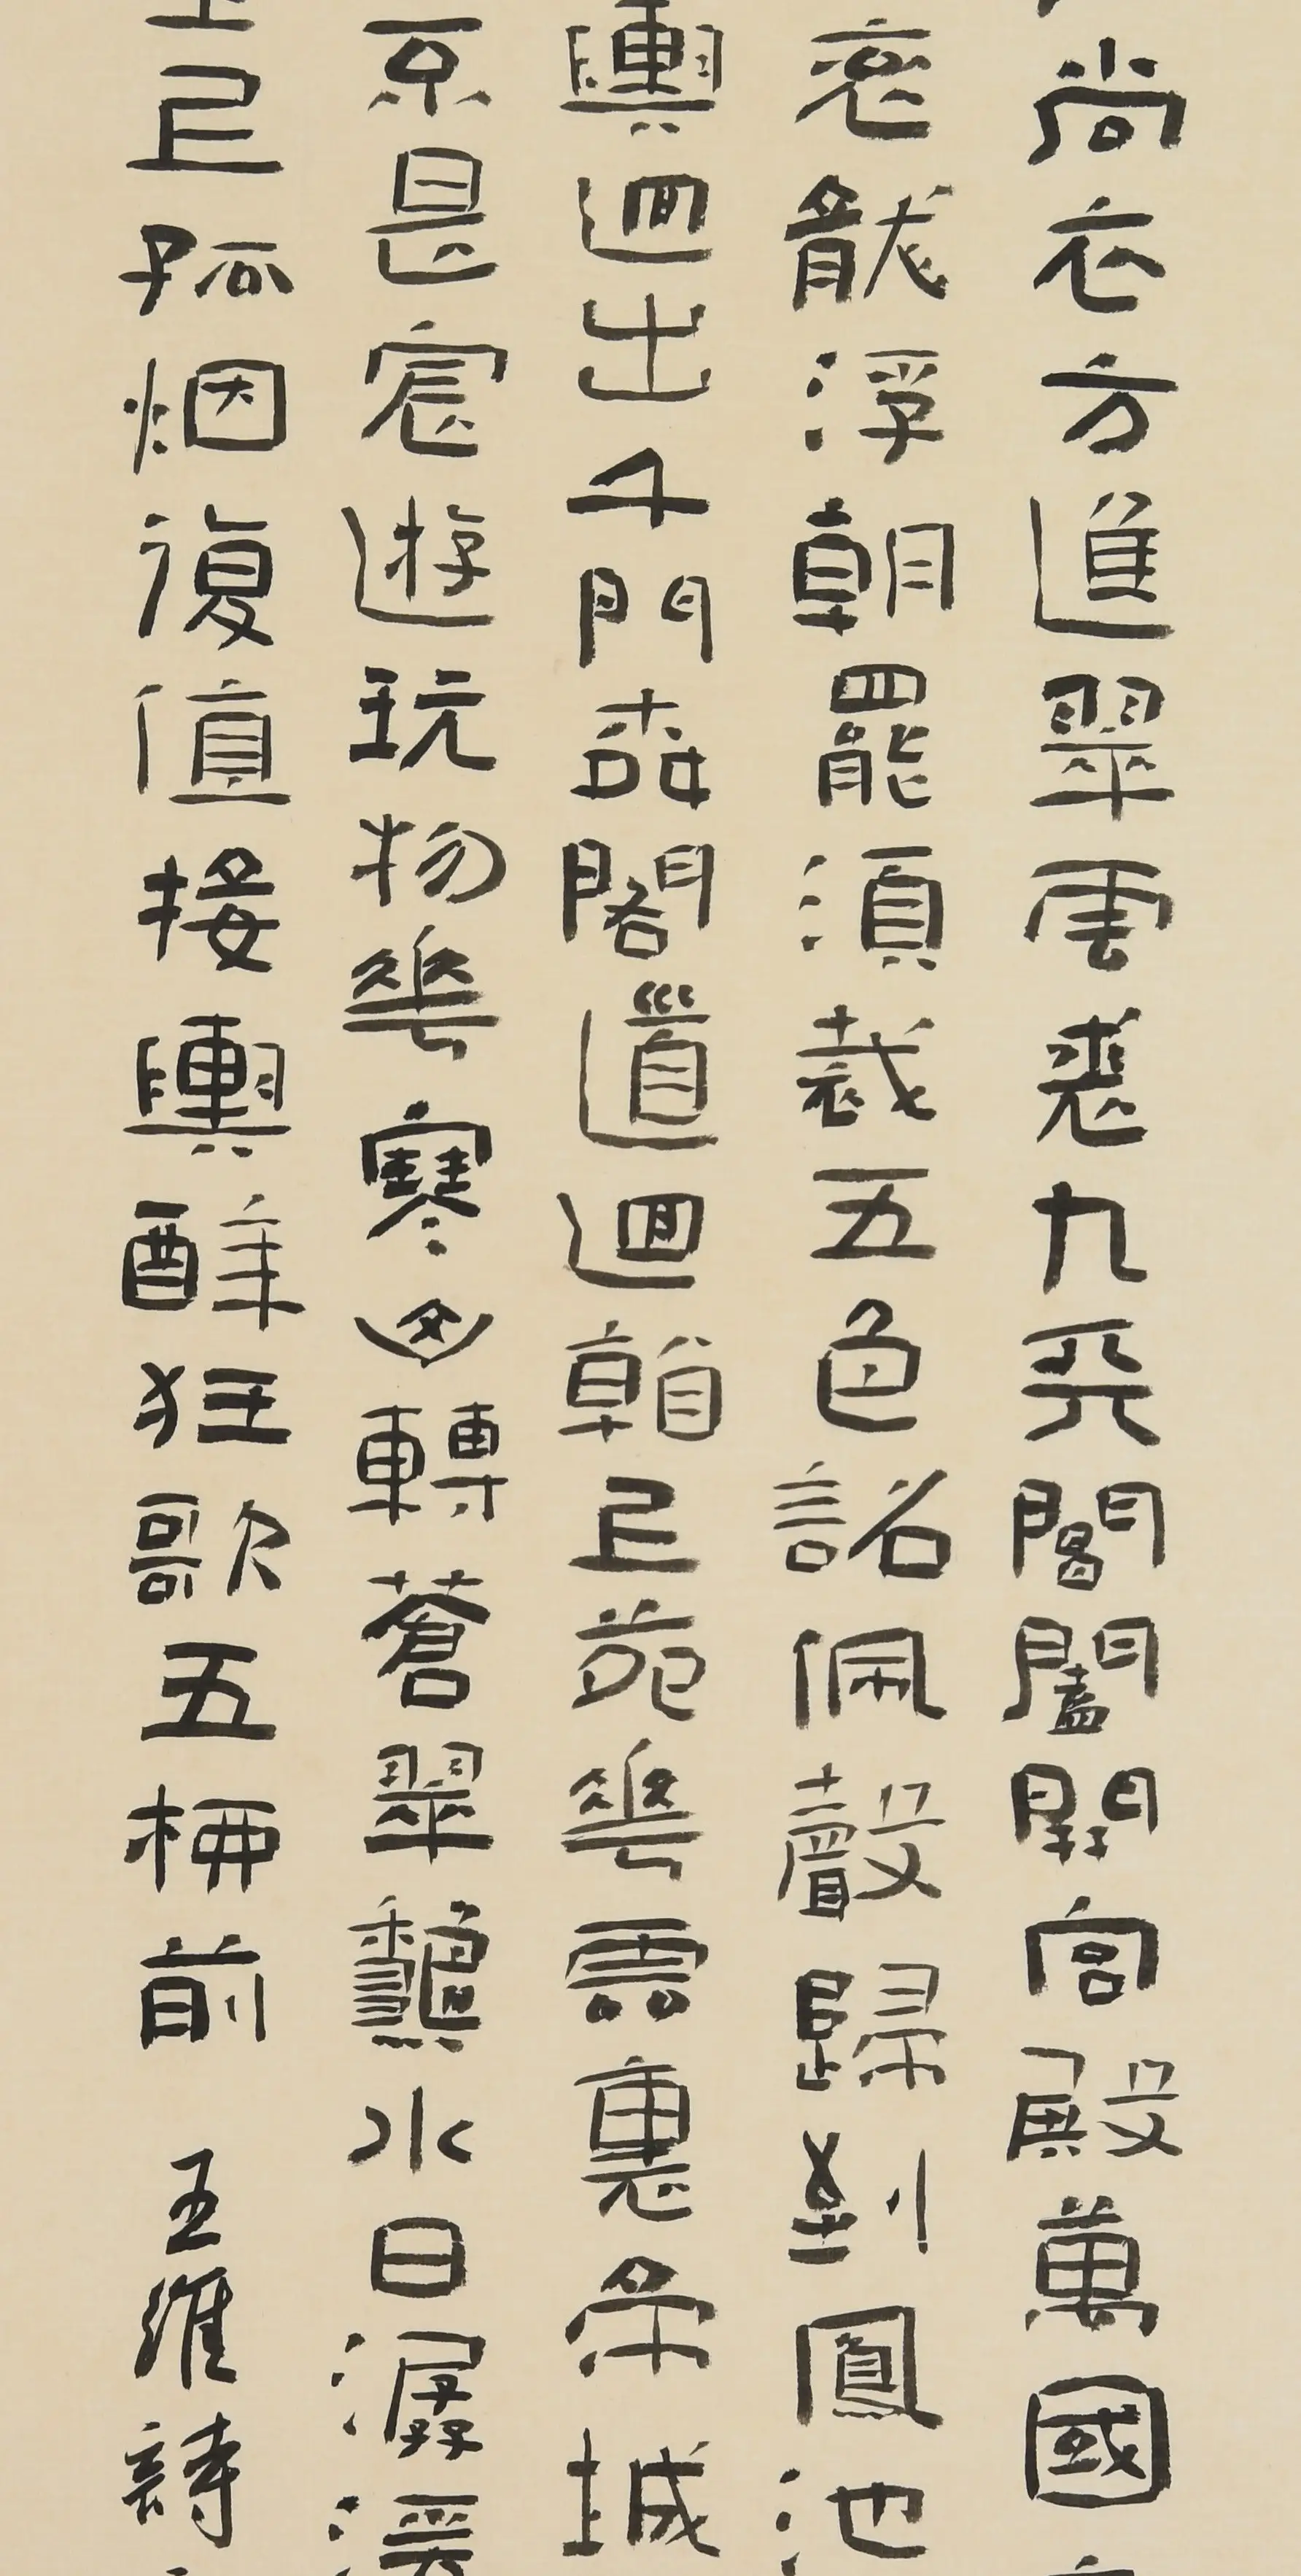 尚衣方進翠雲裘九天閶闔開宮殿萬國
袞龍浮朝罷須裁五色詔佩聲歸到鳳池
輿迴出千門桺閣道迴看上苑華雲裏帝城
不是宸遊玩物華寒山轉蒼翠龝水日潺湲
上孤烟復值接輿醉狂歌五桺前 王維詩